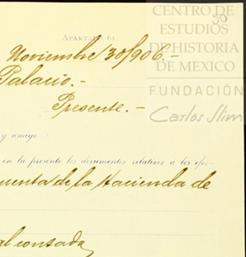 CENTRO DE
ESTUDIOS
DE HISTORIA
DE MEXICO
FUNDACIÓN
Carlos Slim
APARTAD 61.
Noviembre/30/906.-
Palacio.-
Presente.-
y amigo
en la presente los documentos relativos a los efec-
cuenta de la Hacienda de